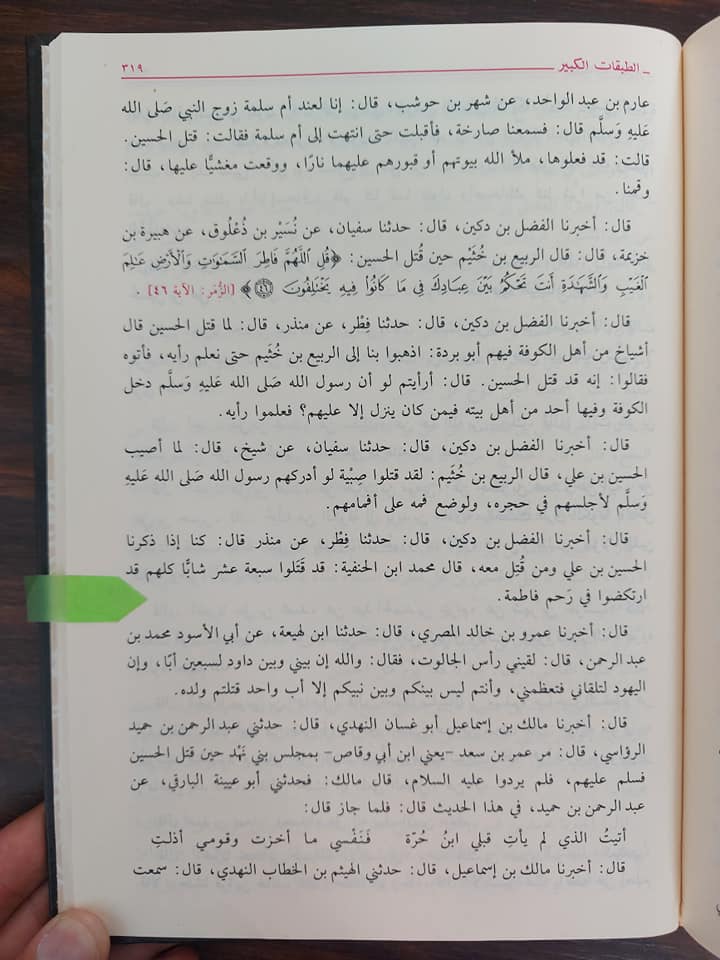 ـ الطبقات الكبير ٣١٩
عارم بن عبد الواحد، عن شهر بن حوشب، قال: إنا لعند أم سلمة زوج النبي صَلى الله
عَليهِ وَسلَّم قال: فسمعنا صارخة، فأقبلت حتى انتهت إلى أم سلمة فقالت: قتل الحسين.
قالت: قد فعلوها، ملأ الله بيوتهم أو قبورهم عليهما نارًا، ووقعت مغشيًّا عليها، قال:
وقمنا.
قال: أخبرنا الفضل بن دكين، قال: حدثنا سفيان، عن نُسَيْر بن ذُعْلُوق، عن هبيرة بن
خزيمة، قال: قال الربيع بن خُثَيْم حين قُتل الحسين: ﴿قُلِ ٱللَّهُمَّ فَاطِرَ ٱلسَّمَٰوَٰتِ وَٱلْأَرْضِ عَٰلِمَ
ٱلْغَيْبِ وَٱلشَّهَٰدَةِ أَنتَ تَحْكُمُ بَيْنَ عِبَادِكَ فِى مَا كَانُوا۟ فِيهِ يَخْتَلِفُونَ ٤٦﴾ [الزُّمَر: الآية ٤٦].
قال: أخبرنا الفضل بن دكين، قال: حدثنا فِطْر، عن منذر، قال: لما قتل الحسين قال
أشياخ من أهل الكوفة فيهم أبو بردة: اذهبوا بنا إلى الربيع بن خُثَيم حتى نعلم رأيه، فأتوه
فقالوا: إنه قد قتل الحسين. قال: أرأيتم لو أن رسول الله صَلى الله عَليهِ وَسلَّم دخل
الكوفة وفيها أحد من أهل بيته فيمن كان ينزل إلا عليهم؟ فعلموا رأيه.
قال: أخبرنا الفضل بن دكين، قال: حدثنا سفيان، عن شيخ، قال: لما أصيب
الحسين بن علي، قال الربيع بن خُثَيم: لقد قتلوا صِبْية لو أدركهم رسول الله صَلى الله عَليهِ
وَسلَّم لأجلسهم في حجره، ولوضع فمه على أفمامهم.
قال: أخبرنا الفضل بن دكين، قال: حدثنا فِطْر، عن منذر قال: كنا إذا ذكرنا
الحسين بن علي ومن قُتِل معه، قال محمد ابن الحنفية: قد قَتَلوا سبعة عشر شابًّا كلهم قد
ارتكضوا في رَحم فاطمة.
قال: أخبرنا عمرو بن خالد المصري، قال: حدثنا ابن لهيعة، عن أبي الأسود محمد بن
عبد الرحمن، قال: لقيني رأس الجالوت، فقال: والله إن بيني وبين داود لسبعين أبًا، وإن
اليهود لتلقاني فتعظمني، وأنتم ليس بينكم وبين نبيكم إلا أب واحد قتلتم ولده.
قال: أخبرنا مالك بن إسماعيل أبو غسان النهدي، قال: حدثني عبد الرحمن بن حميد
الرؤاسي، قال: مر عمر بن سعد -يعني ابن أبي وقاص- بمجلس بني نَهْد حين قتل الحسين
فسلم عليهم، فلم يردوا عليه السلام، قال مالك: فحدثني أبو عيينة البارقي، عن
عبد الرحمن بن حميد، في هذا الحديث قال: فلما جاز قال:
أتيتُ الذي لم يأتِ قبلي ابنُ حُرّة فَنَفْسي ما أخزت وقومي أذلتِ
قال: أخبرنا مالك بن إسماعيل، قال: حدثني الهيثم بن الخطاب النهدي، قال: سمعت